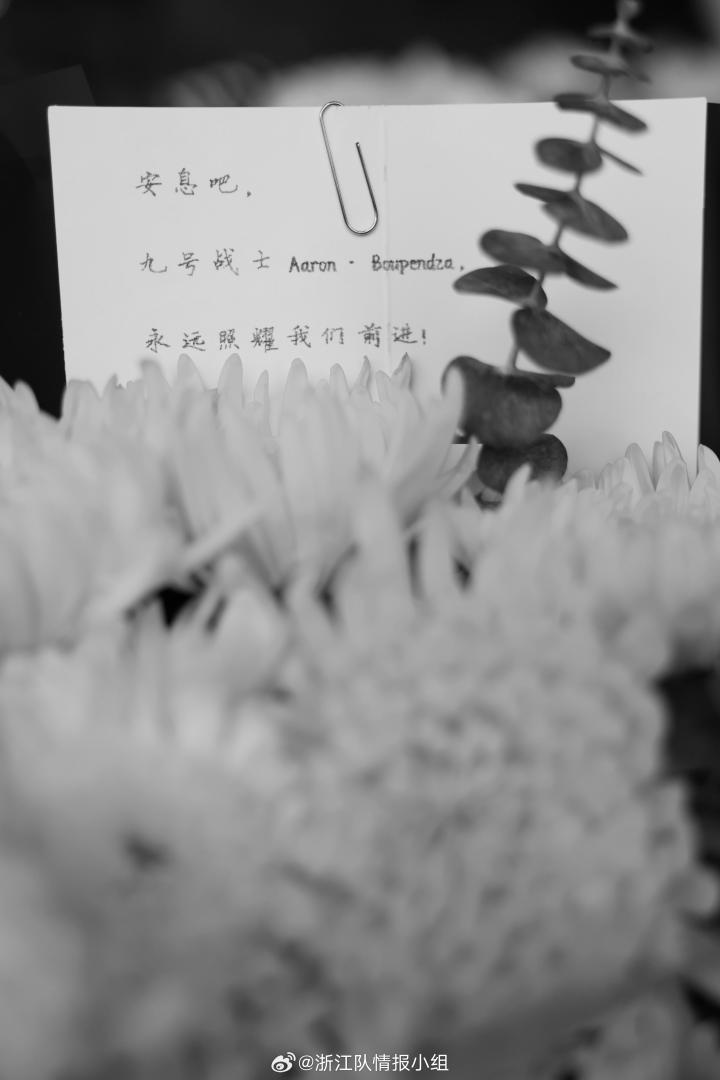 安息吧，
九号战士 Aaron · Boupendza，
永远照耀我们前进！
@浙江队情报小组